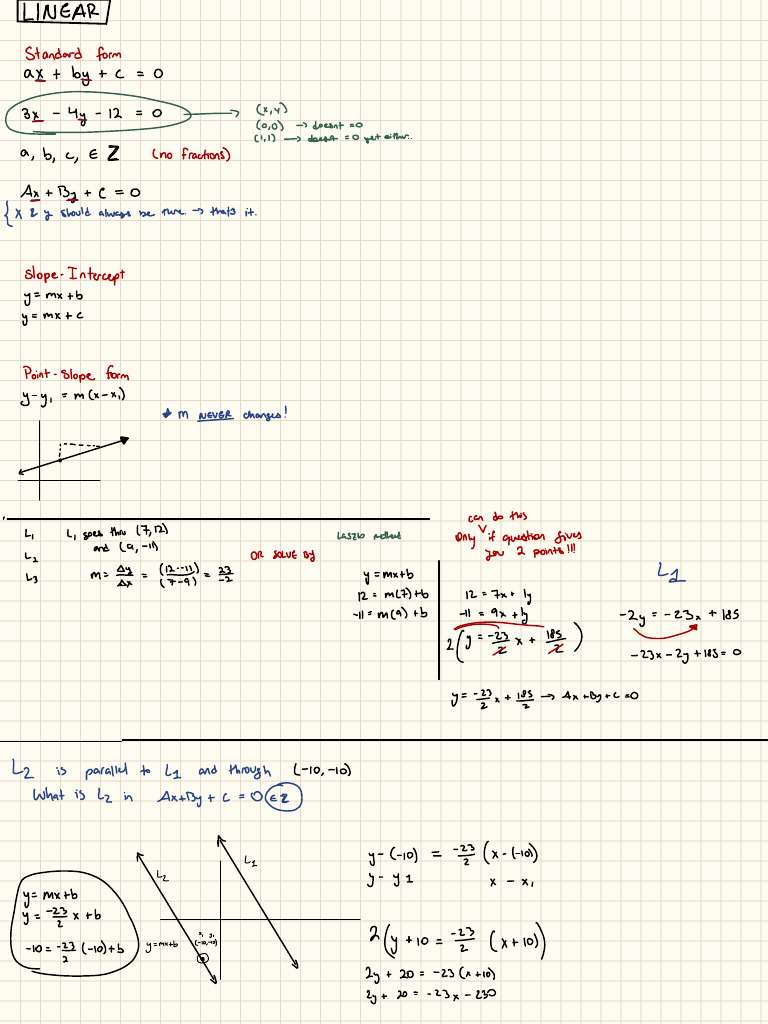 LINEAR
Standard form
ax + by + c = 0
3x - 4y - 12 = 0
(x,y)
(0,0) → doesnt = 0
(1,1) → doesnt = 0 yet either..
a, b, c, ∈ Z (no fractions)
Ax + By + C = 0
{ x & y should always be there → thats it.
Slope-Intercept
y = mx + b
y = mx + c
Point-Slope form
y - y₁ = m(x - x₁)
* m NEVER changes!
L₁ L₁ goes thru (7,12)
L₂ and (9,-11)
L₃ m = Δy/Δx = (12--11)/(7-9) = 23/-2
OR SOLVE BY
Laszlo method
y = mx + b
12 = m(7) + b
-11 = m(9) + b
can do this
Only if question gives
you 2 points!!!
12 = 7x + 1y
-11 = 9x + 1y
2(y = -23/2 x + 185/2)
y = -23/2 x + 185/2 → Ax + By + C = 0
L1
-2y = -23x + 185
-23x - 2y + 185 = 0
L2 is parallel to L1 and through (-10,-10)
What is L2 in Ax+By + C = 0 ∈ Z
y = mx + b
y = -23/2 x + b
-10 = -23/2 (-10) + b
L2
L1
y = mx+b
x₁ y₁
(-10,-10)
y - (-10) = -23/2 (x - (-10))
y - y1 x - x₁
2(y + 10 = -23/2 (x + 10))
2y + 20 = -23(x + 10)
2y + 20 = -23x - 230